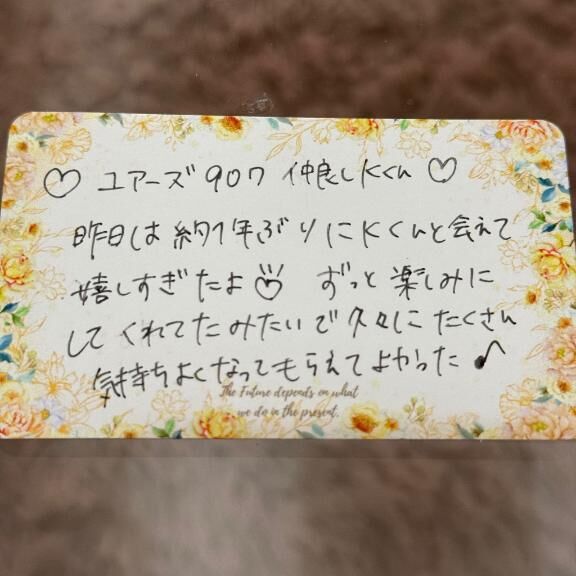 ♡ ユアーズ907 仲良しKくん ♡
昨日は約1年ぶりにKくんと会えて
嬉しすぎたよ♡ ずっと楽しみに
してくれてたみたいで久々にたくさん
気持ちよくなってもらえてよかった♪
The Future depends on what
we do in the present.